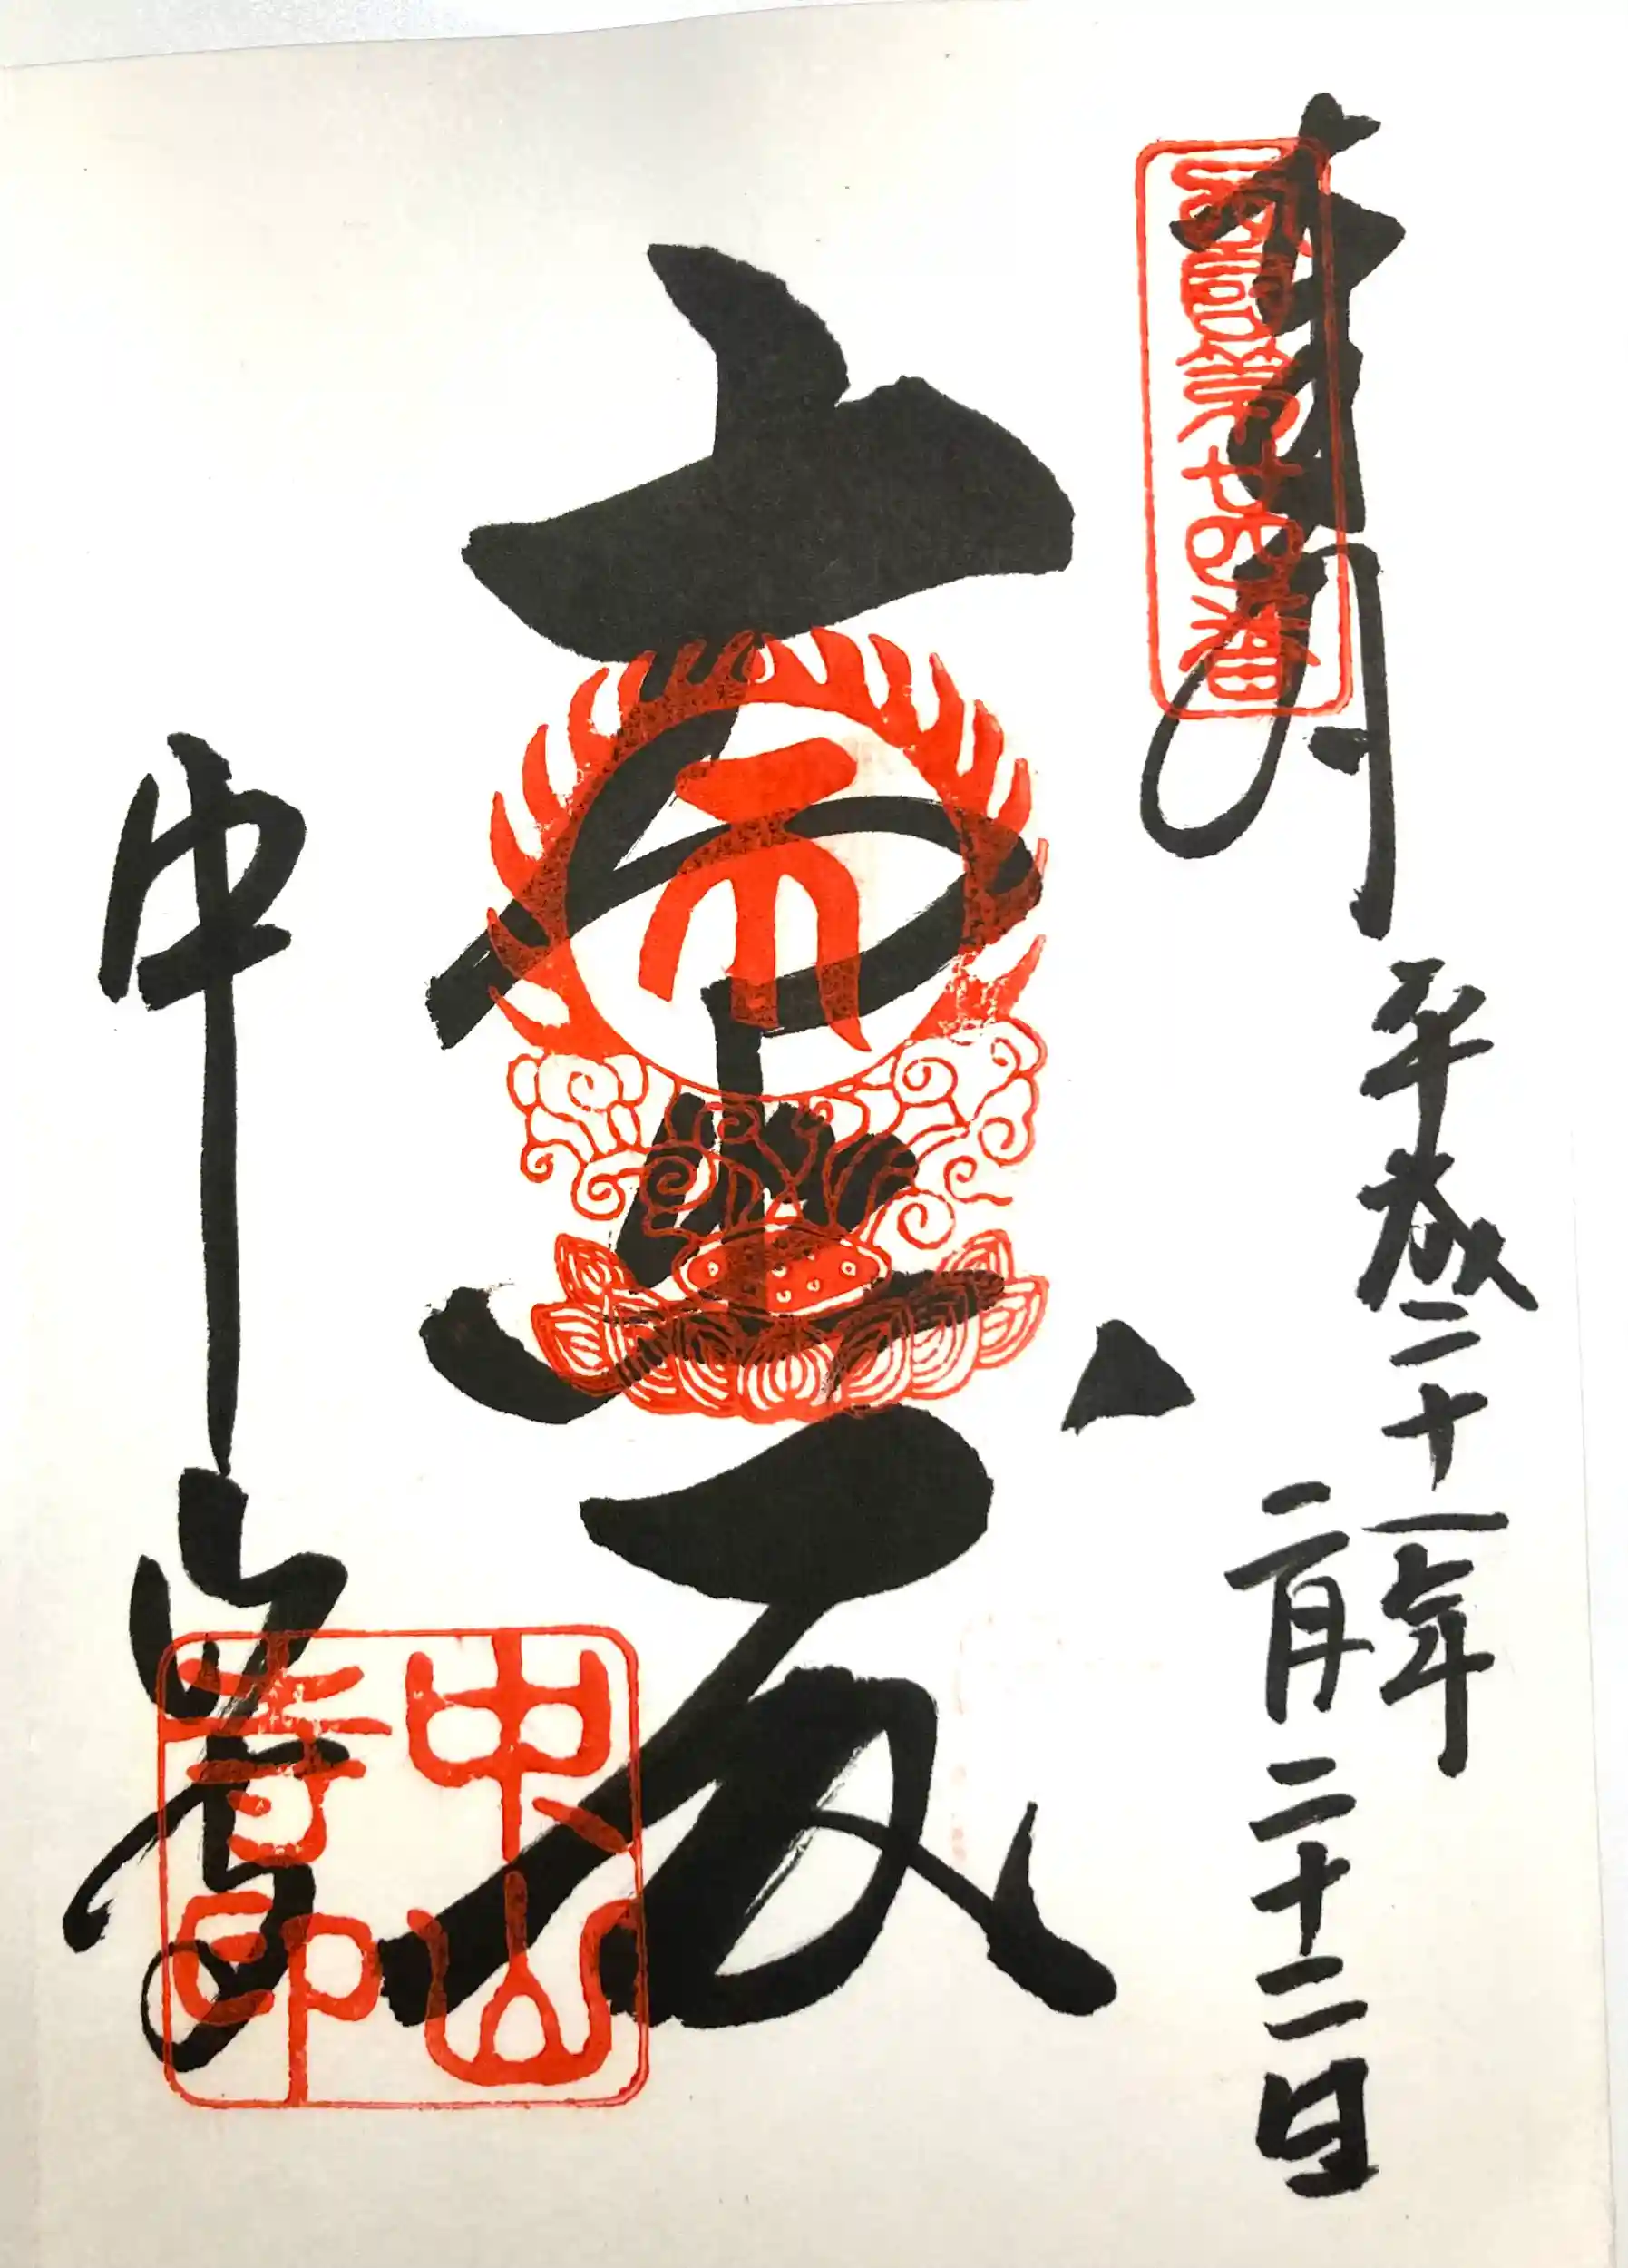 奉拝
西國第廿四番
平成二十一年
二月二十二日
大悲殿
中山寺
中山寺印